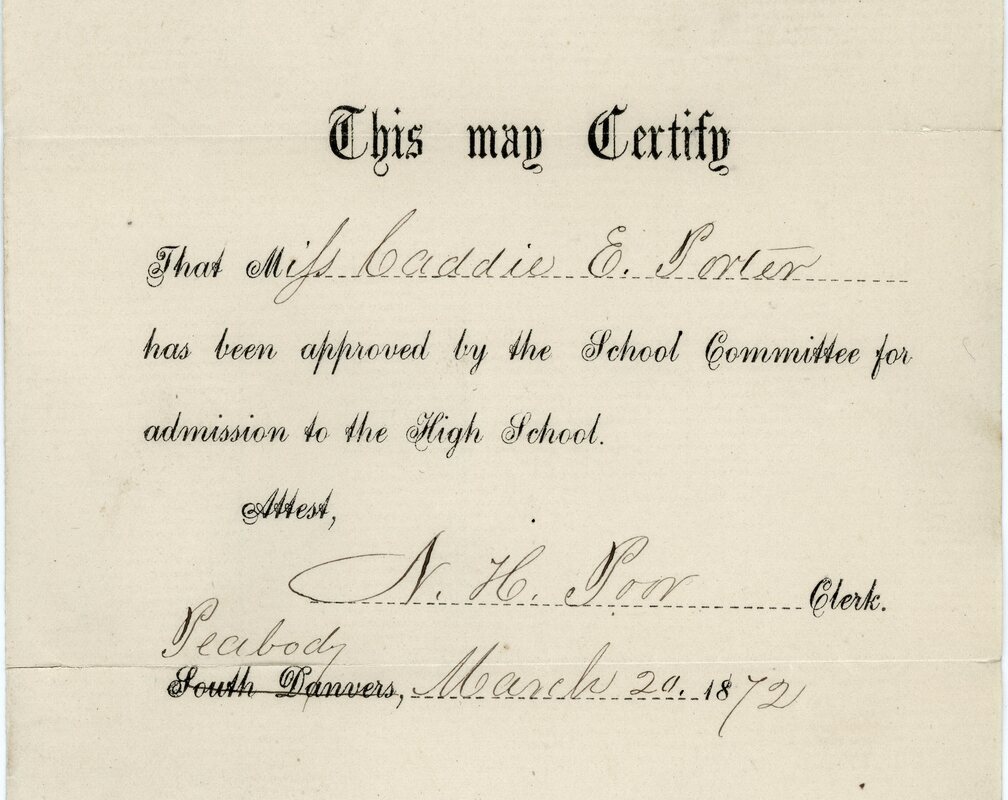 This may Certify
That Miss Caddie E. Porter
has been approved by the School Committee for
admission to the High School.
Attest,
N. H. Poor Clerk.
Peabody
South Danvers, March 20. 1872